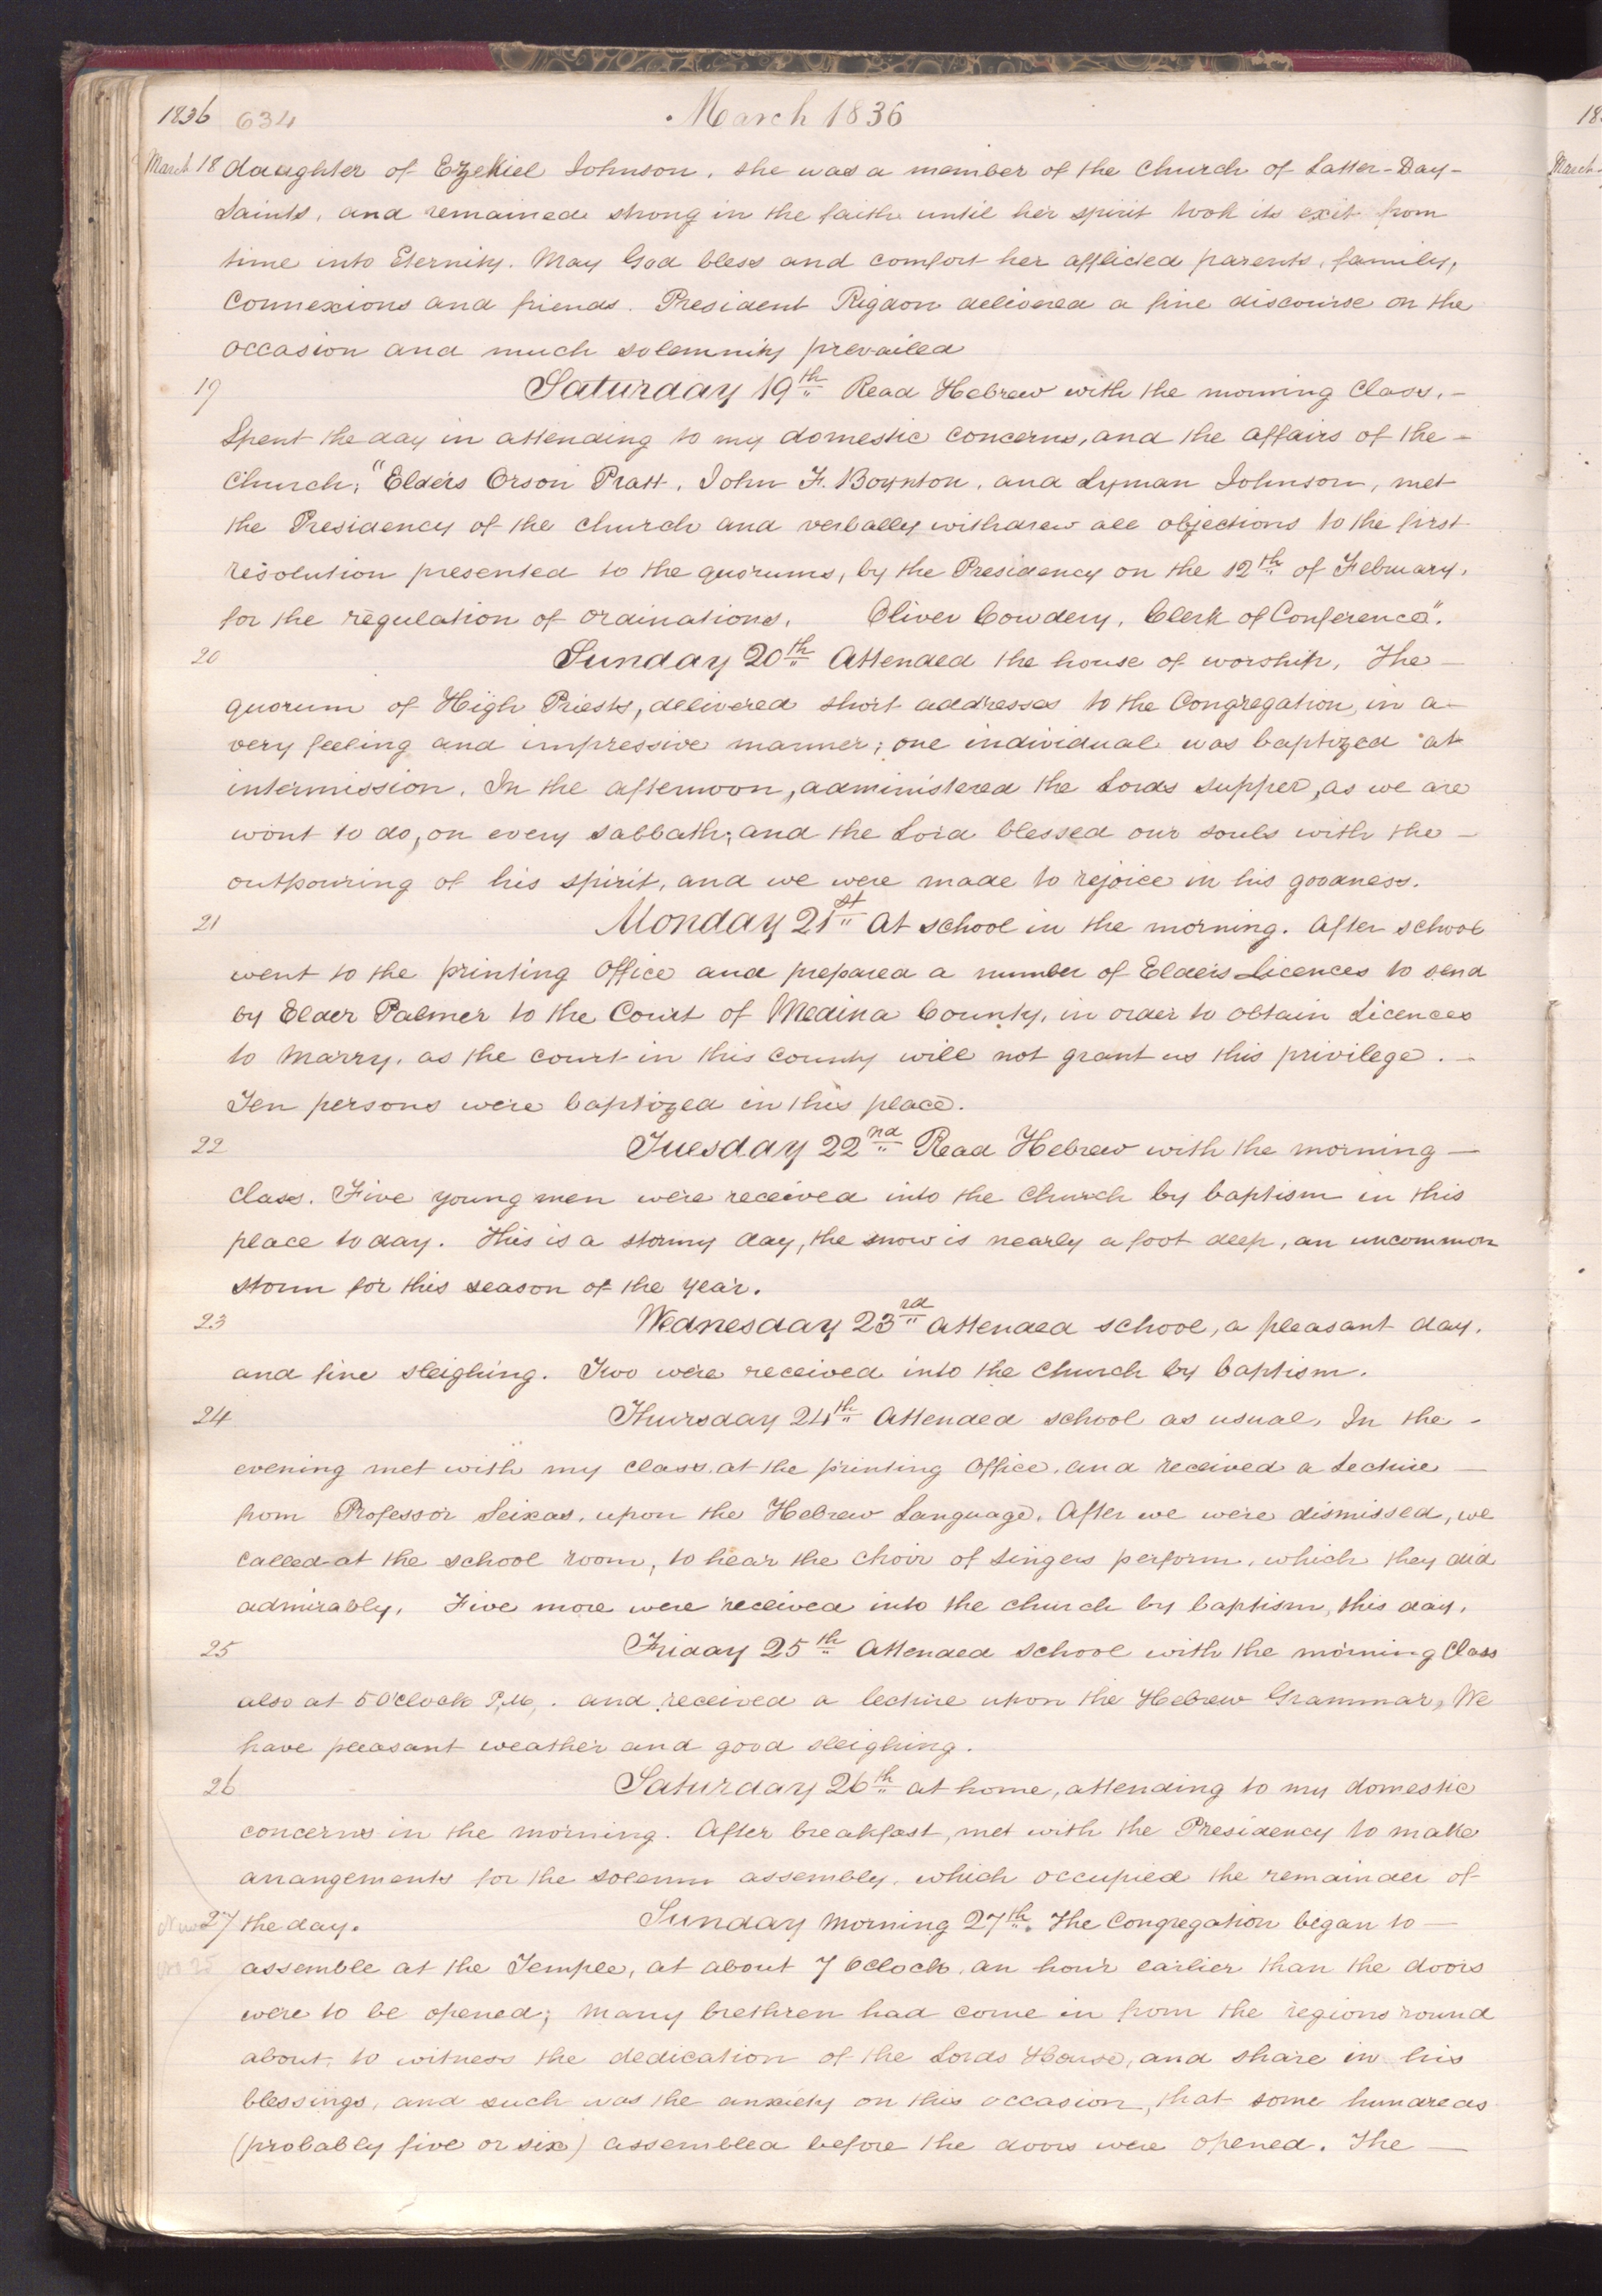 1836 634 March 1836
March 18 daughter of Ezekiel Johnson, she was a member of the Church of Latter-Day-
Saints, and remained strong in the faith until her spirit took its exit from
time into Eternity. May God bless and comfort her afflicted parents, family,
Connexions and friends. President Rigdon delivered a fine discourse on the
occasion and much solemnity prevailed
19 Saturday 19th Read Hebrew with the morning Class. —
Spent the day in attending to my domestic concerns, and the affairs of the —
Church; "Elders Orson Pratt, John F. Boynton, and Lyman Johnson, met
the Presidency of the church and verbally withdrew all objections to the first
resolution presented to the quorums, by the Presidency on the 12th of February,
for the regulation of ordinations. Oliver Cowdery, Clerk of Conference".
20 Sunday 20th Attended the house of worship, The —
quorum of High Priests, delivered short addresses to the Congregation, in a —
very feeling and impressive manner; one individual was baptized at
intermission. In the afternoon, administered the Lords supper, as we are
wont to do, on every sabbath; and the Lord blessed our souls with the —
outpouring of his spirit, and we were made to rejoice in his goodness.
21 Monday 21st At school in the morning. After school
went to the printing office and prepared a number of Elders Licences to send
by Elder Palmer to the Court of Medina County, in order to obtain Licences
to marry, as the court in this county will not grant us this privilege. —
Ten persons were baptized in this place.
22 Tuesday 22nd Read Hebrew with the morning —
class. Five young men were received into the Church by baptism in this
place to day. This is a stormy day, the snow is nearly a foot deep, an uncommon
storm for this season of the year.
23 Wednesday 23rd attended school, a pleasant day,
and fine sleighing. Two were received into the Church by baptism.
24 Thursday 24th Attended school as usual, In the -
evening met with my class, at the printing office, and received a Lecture —
from Professor Seixas, upon the Hebrew Language. After we were dismissed, we
called at the school room, to hear the choir of singers perform, which they did
admirably. Five more were received into the church by baptism, this day.
25 Friday 25th Attended school with the morning Class
also at 5 O'clock P,M,. and received a lecture upon the Hebrew Grammar, We
have pleasant weather and good sleighing.
26 Saturday 26th at home, attending to my domestic
concerns in the morning. After breakfast, met with the Presidency to make
arrangements for the solemn assembly, which occupied the remainder of
27 the day. Sunday morning 27th. The Congregation began to —
assemble at the Temple, at about 7 Oclock, an hour earlier than the doors
were to be opened; many brethren had come in from the regions round
about, to witness the dedication of the Lords House, and share in his
blessings, and such was the anxiety on this occasion, that some hundreds
(probably five or six) assembled before the doors were opened. The —